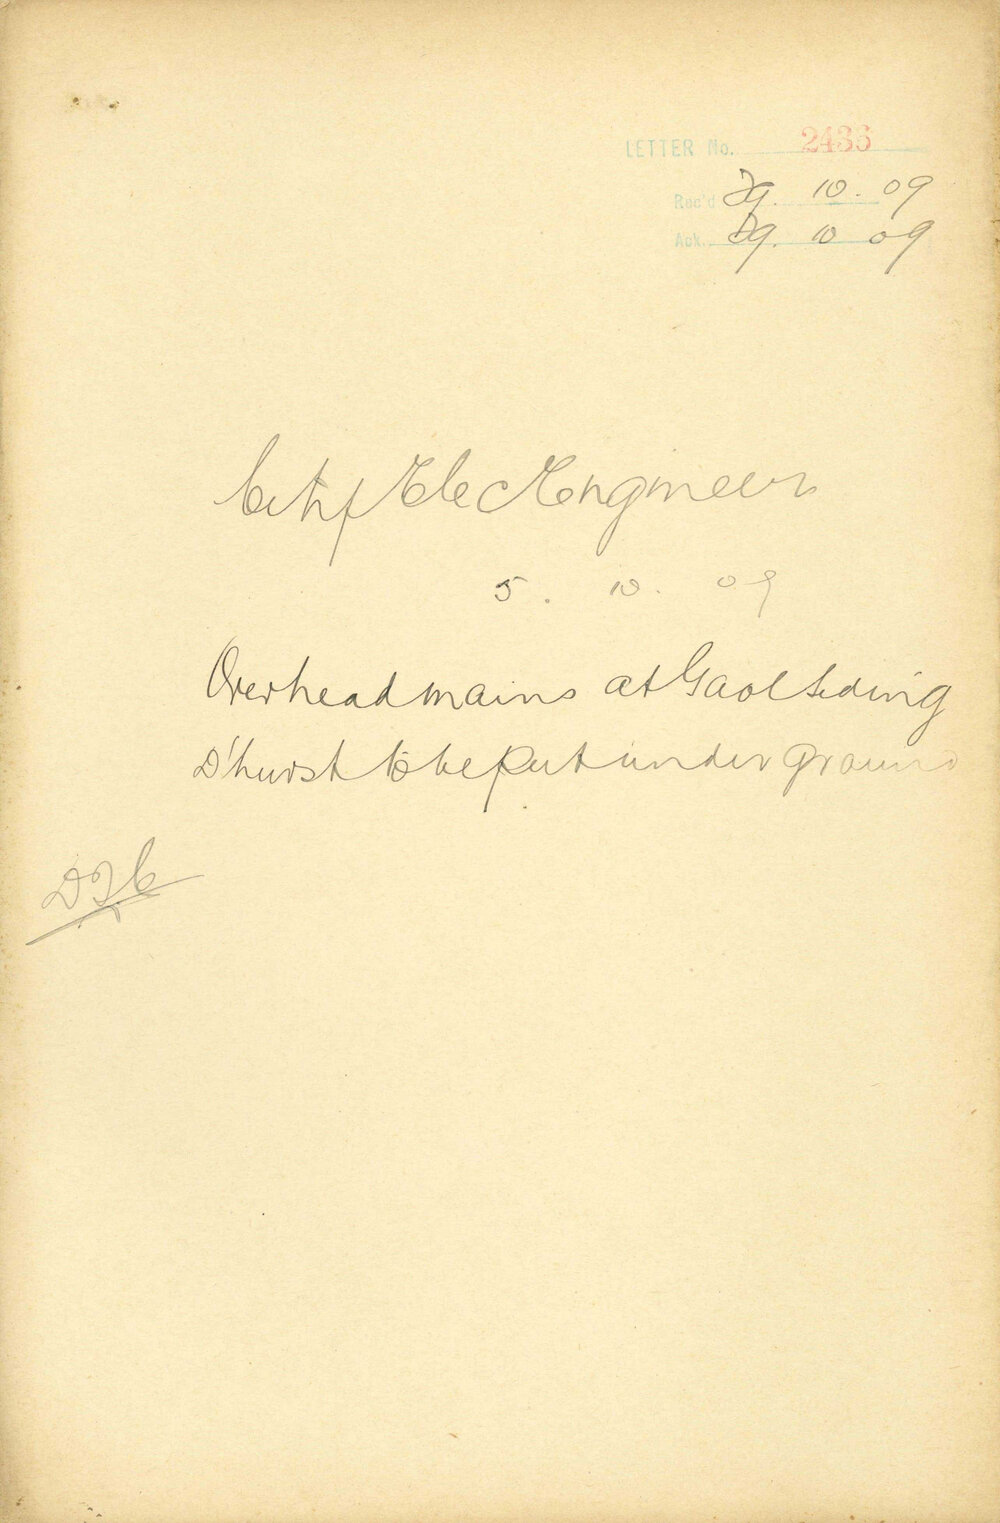 LETTER No. 2436
Rec'd 29. 10. 09
Ack. 29. 10 09
City Elec Engineer
5. 10. 09
Overhead mains at Gaol Siding
D'hurst to be put underground